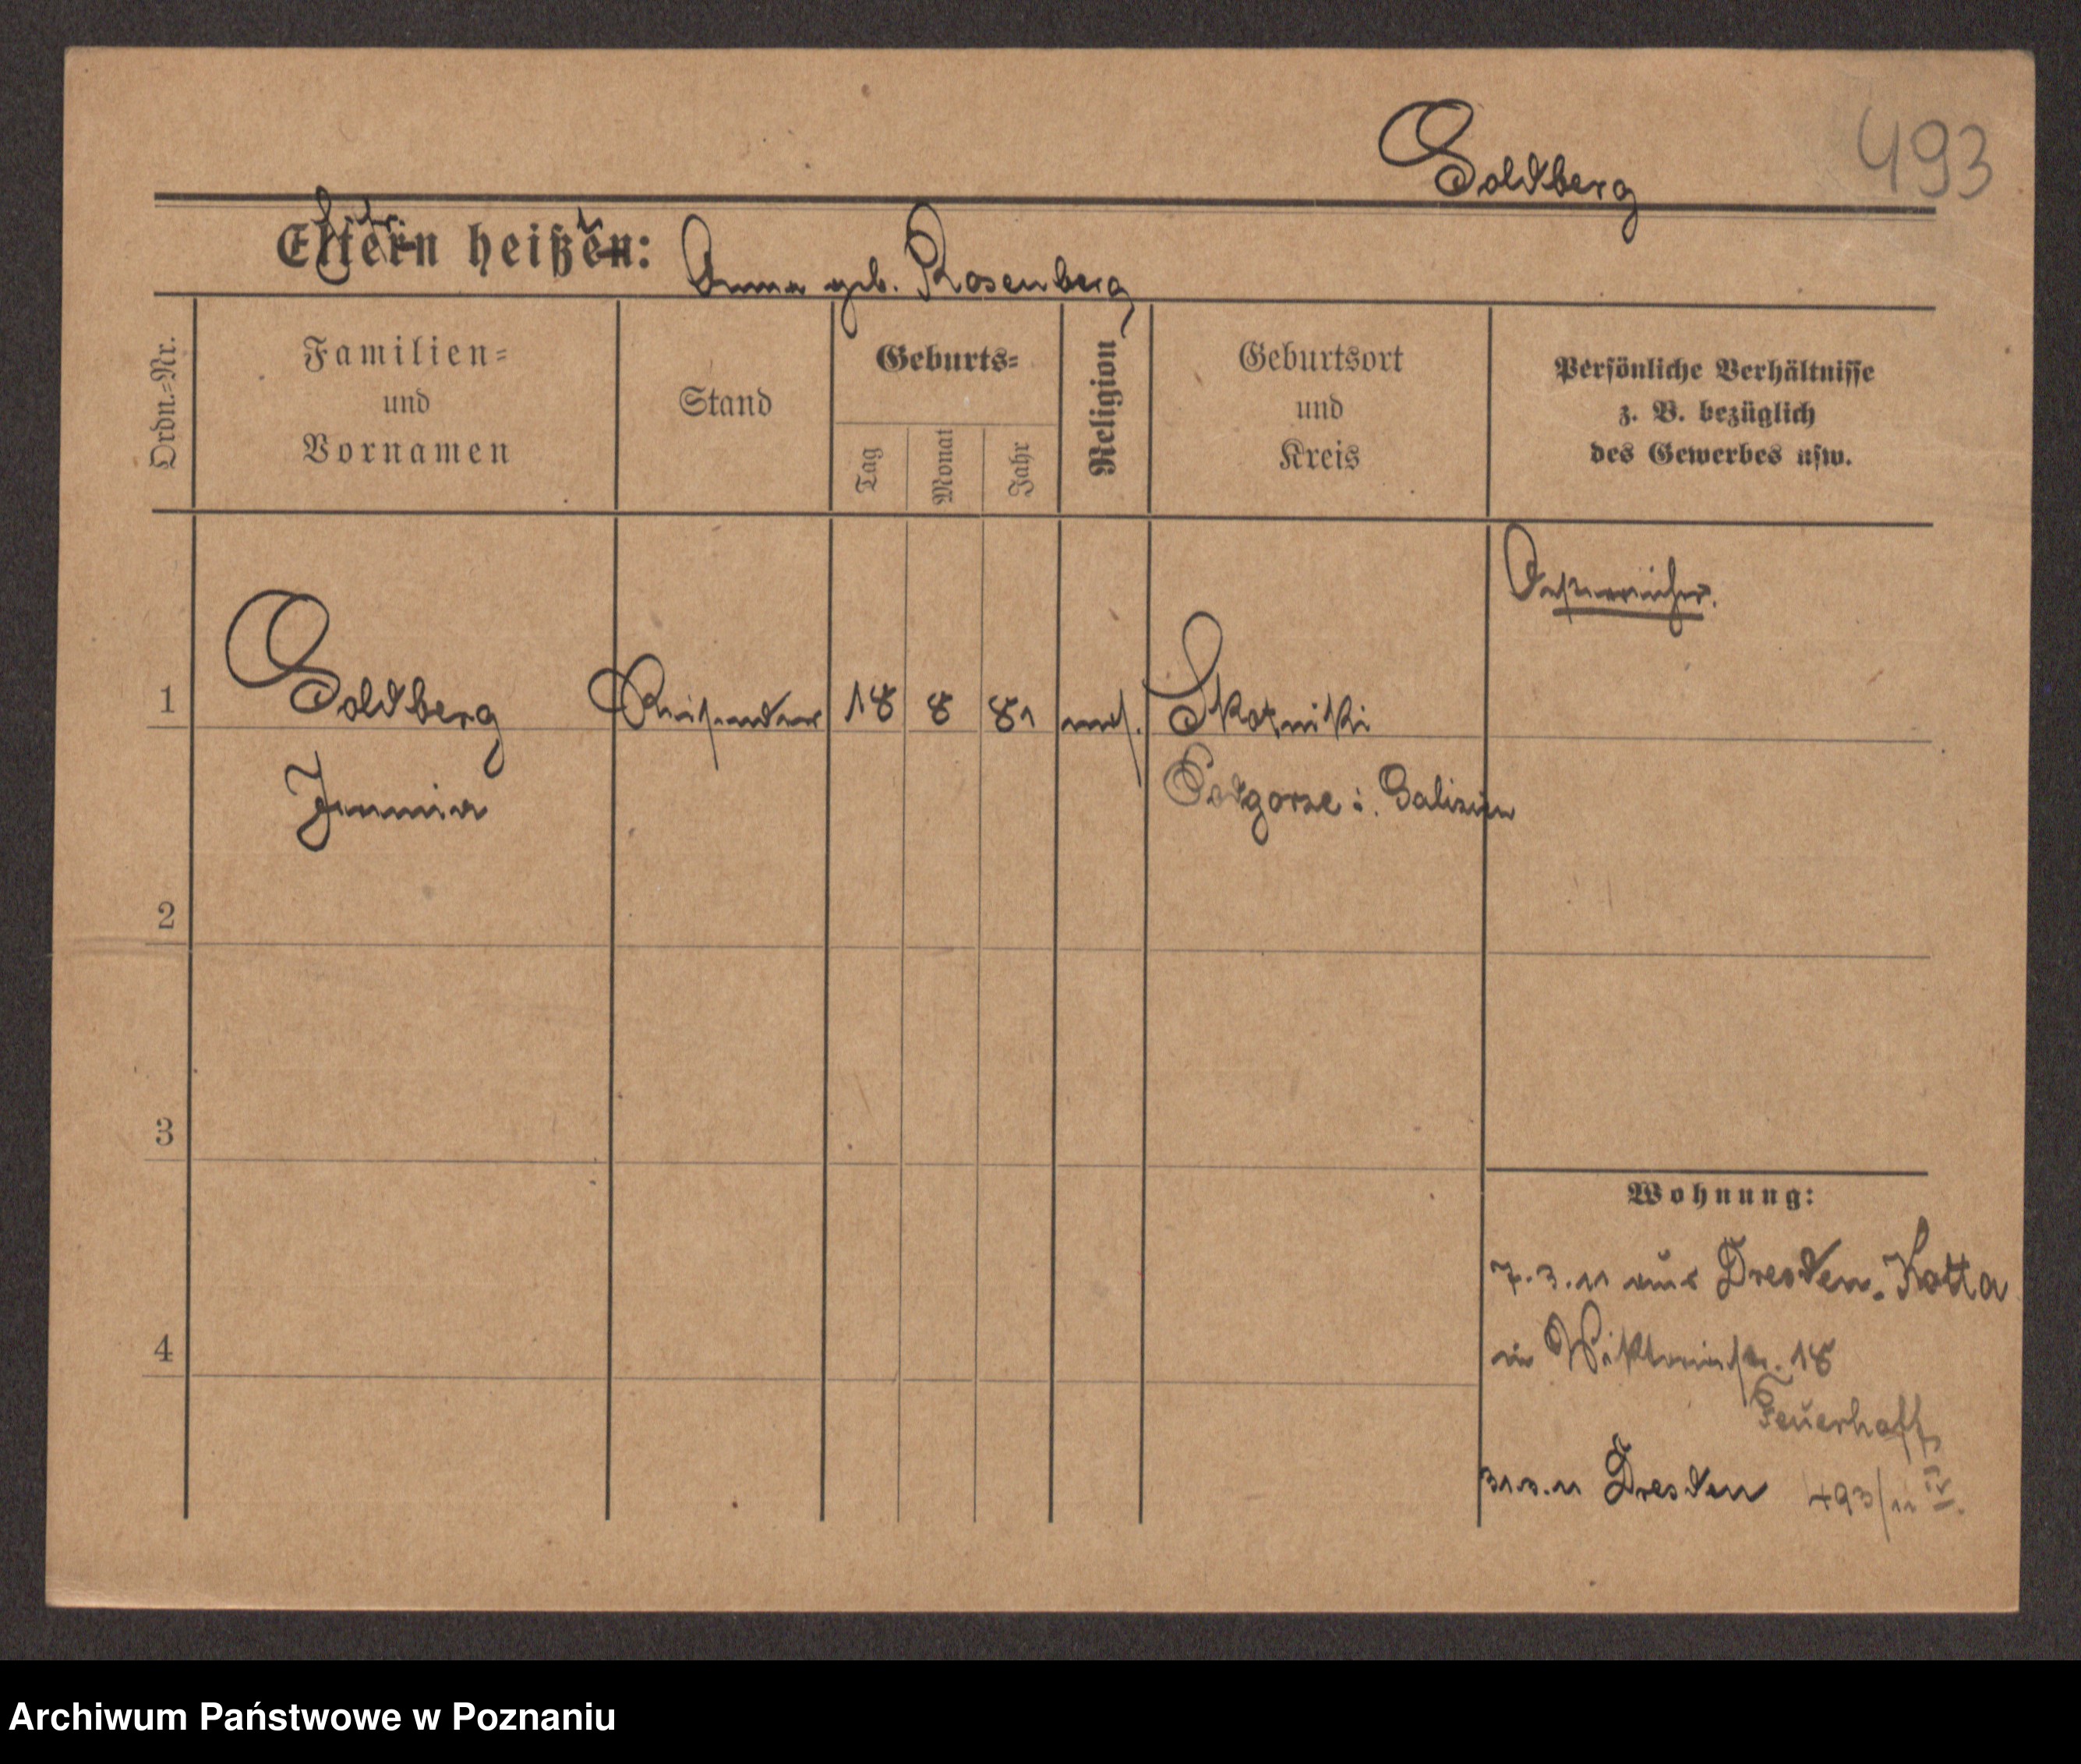 493
Goldberg
Eltern heißen: Anna geb. Rosenberg
Ordn.-Nr.
Familien-
und
Vornamen
Stand
Geburts-
Tag
Monat
Jahr
Religion
Geburtsort
und
Kreis
Persönliche Verhältnisse
z. B. bezüglich
des Gewerbes usw.
Oesterreicher.
1 Goldberg Reisender 18 8 81 mos. Skotniki
Podgorze i. Galizien
2
3
4
Wohnung:
7.3.11 aus Dresden-Kotta
in Viktoriastr. 18
Feuerhaff
31.3.11 Dresden 493/11 IV.
Archiwum Państwowe w Poznaniu